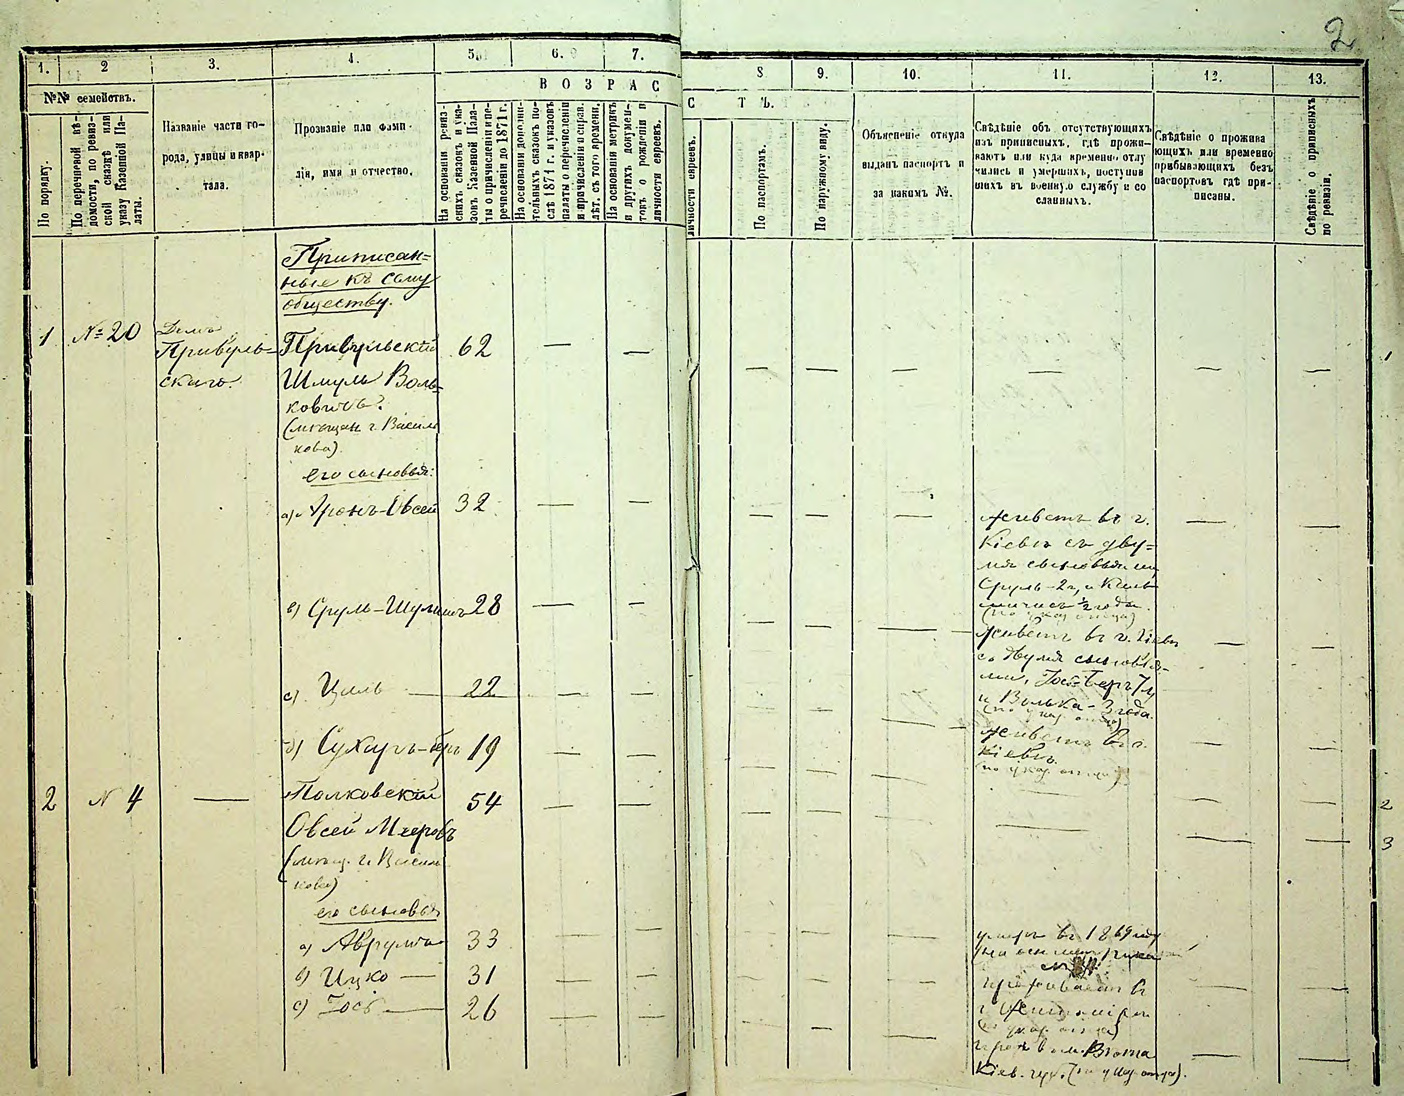 2
1. 2 3. 4. 5. 6. 7. 8 9. 10. 11. 12. 13.
№№ семействъ.
ВОЗРАС
СТЪ.
По порядку.
По перечневой вѣ-
домости, по ревиз-
ской сказкѣ или
указу Казенной Па-
латы.
Названіе части го-
рода, улицы и квар-
тала.
Прозваніе или фами-
лія, имя и отчество.
На основаніи ревиз-
скихъ сказокъ и ука-
зовъ Казенной Пала-
ты о причисленіи и пе-
речисленіи до 1871 г.
На основаніи дополни-
тельныхъ сказокъ по-
слѣ 1871 г. и указовъ
палаты о перечисленіи
и причисленіи и справ.
лѣт. съ того времени.
На основаніи метрикъ
и другихъ докумен-
товъ о рожденіи и
личности евреевъ.
личности евреевъ.
По паспортамъ.
По наружному виду.
Объясненіе откуда
выданъ паспортъ и
за какимъ №.
Свѣдѣніе объ отсутствующихъ
изъ приписныхъ, гдѣ прожи-
ваютъ или куда временно отлу
чились и умершихъ, поступив
шихъ въ военную службу и со
сланныхъ.
Свѣдѣніе о прожива
ющихъ или временно
прибывающихъ безъ
паспортовъ гдѣ при-
писаны.
Свѣдѣніе о приписныхъ
по ревизіи.
Приписан=
ные къ сему
обществу.
1 №20 Домъ
Привуль=
скаго.
Привульскій 62
Шмуль Воль-
ковичъ.
(мѣщан. г. Василь
кова).
его сыновья:
а) Аронъ-Овсей 32
живетъ въ г.
Кіевѣ съ дву=
мя сыновьями
в) Сруль-Шулимъ 28
живетъ въ г. Кіевѣ
съ двумя сыновья-
ми, Іось-Беръ 7 л
и Волька - 3 года.
(по указ. отца)
с) Циль 22
д) Сухаръ-беръ 19
живетъ въ г.
Кіевѣ.
(по указ. отца)
2 № 4 Полковскій 54
Овсей Мееровъ
(мѣщ. г. Василь
кова)
его сыновья
а) Аврумъ 33
умеръ въ 1869 году
в) Ицко 31
проживаетъ въ
г. Житомірѣ
(по указ. отца)
с) Іось 26
Кіев. губ. (по указ. отца).
1
2
3